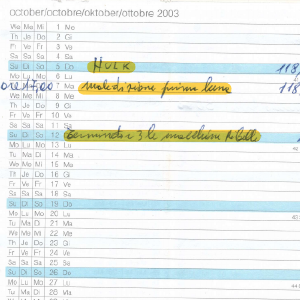 october/octobre/oktober/ottobre 2003
We Me Mi 1 Me
Th Je Do 2 Gi
Fr Ve Fr 3 Ve
Sa Sa Sa 4 Sa
Su Di So 5 Do HULK 118
Mo Lu Mo 6 Lu
Tu Ma Di 7 Ma maledizione prima luna 118
We Me Mi 8 Me
Th Je Do 9 Gi
Fr Ve Fr 10 Ve
Sa Sa Sa 11 Sa
Su Di So 12 3 le macchine
Mo Lu Mo 13 Lu
Tu Ma Di 14 Ma
We Me Mi 15 Me
Th Je Do 16 Gi
Fr Ve Fr 17 Ve
Sa Sa Sa 18 Sa
Su Di So 19 Do
Mo Lu Mo 20 Lu
Tu Ma Di 21 Ma
We Me Mi 22 Me
Th Je Do 23 Gi
Fr Ve Fr 24 Ve
Sa Sa Sa 25 Sa
Su Di So 26 Do
Mo Lu Mo 27 Lu
Tu Ma Di 28 Ma